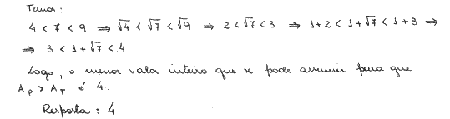 Temos:
4 < 7 < 9 ⇒ √4 < √7 < √9 ⇒ 2 < √7 < 3 ⇒ 1+2 < 1+√7 < 1+3 ⇒
⇒ 3 < 1+√7 < 4
Logo, o menor valor inteiro que se pode assumir para que
A_P > A_T é 4.
Resposta: 4